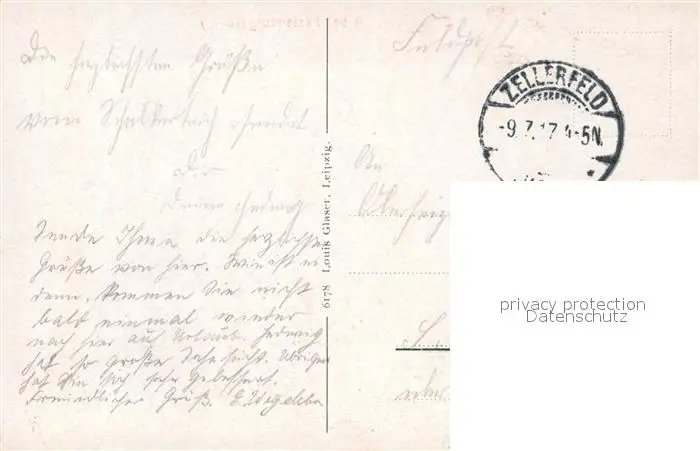 Die herzlichsten Grüße
vom sendet
Dir
Deine Hedwig
Sende Ihnen die herzlichste
Grüße von hier. Wie ist es
denn, kommen Sie nicht
bald einmal wieder
nach hier auf Urlaub. Hedwig
hat so große Sehnsucht. Übrigens
hat sie sich sehr gebessert.
Freundlichen Gruß. E.
6178 Louis Glaser, Leipzig.
Feldpost
ZELLERFELD
-9.7.17 4-5N.
An
privacy protection
Datenschutz